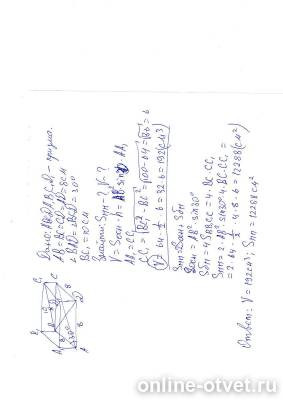 Дано: ABCDA₁B₁C₁D₁ - призма.
AB=BC=CD=AD=8см
∠BAD=∠BCD=30°
BC₁=10см
Найти: Sпп-? V-?
V=Sосн·h=AB²·sin30·AA₁
AA₁=CC₁
CC₁=√BC₁²-BC²=√100-64=√36=6
V=64·1/2·6=32·6=192(см³)
Sпп=2Sосн+Sбп
Sосн=AB²·sin30°
Sбп=4SBB₁C₁C=4·BC·CC₁
Sпп=2·AB²·sin30°·4·BC·CC₁=
=2·64·1/2·4·8·6=12288(см²)
Ответ: V=192см³; Sпп=12288см²
A
B
C
D
A₁
B₁
C₁
30°
8
8
online-otvet.ru